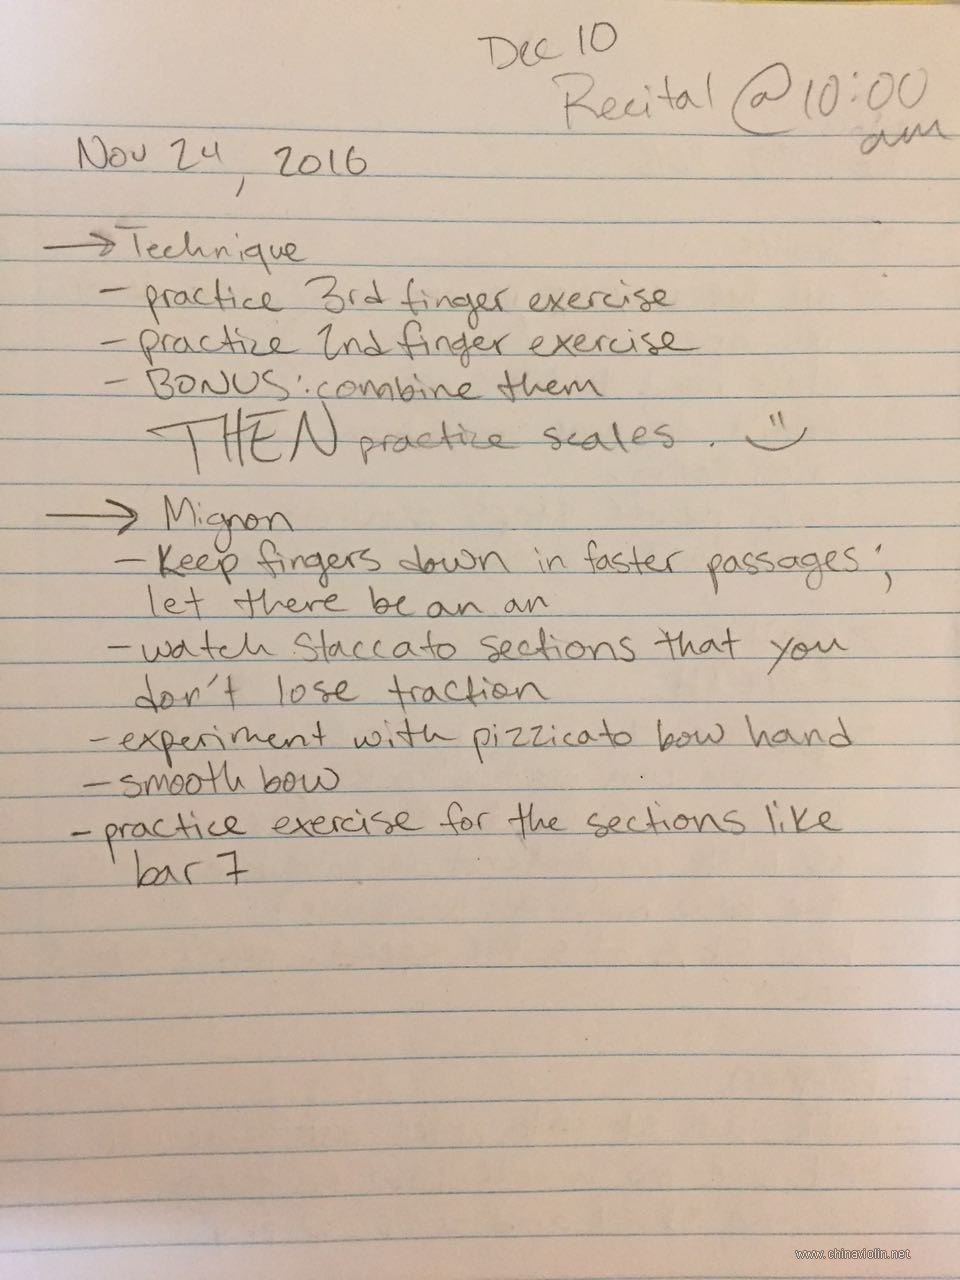 Dec 10
Recital @ 10:00
am
Nov 24, 2016
→ Technique
- practice 3rd finger exercise
- practice 2nd finger exercise
- BONUS: combine them
THEN practice scales.
→ Mignon
- Keep fingers down in faster passages;
let there be an an
- watch staccato sections that you
don't lose traction
- experiment with pizzicato bow hand
- smooth bow
- practice exercise for the sections like
bar 7
www.chinaviolin.net